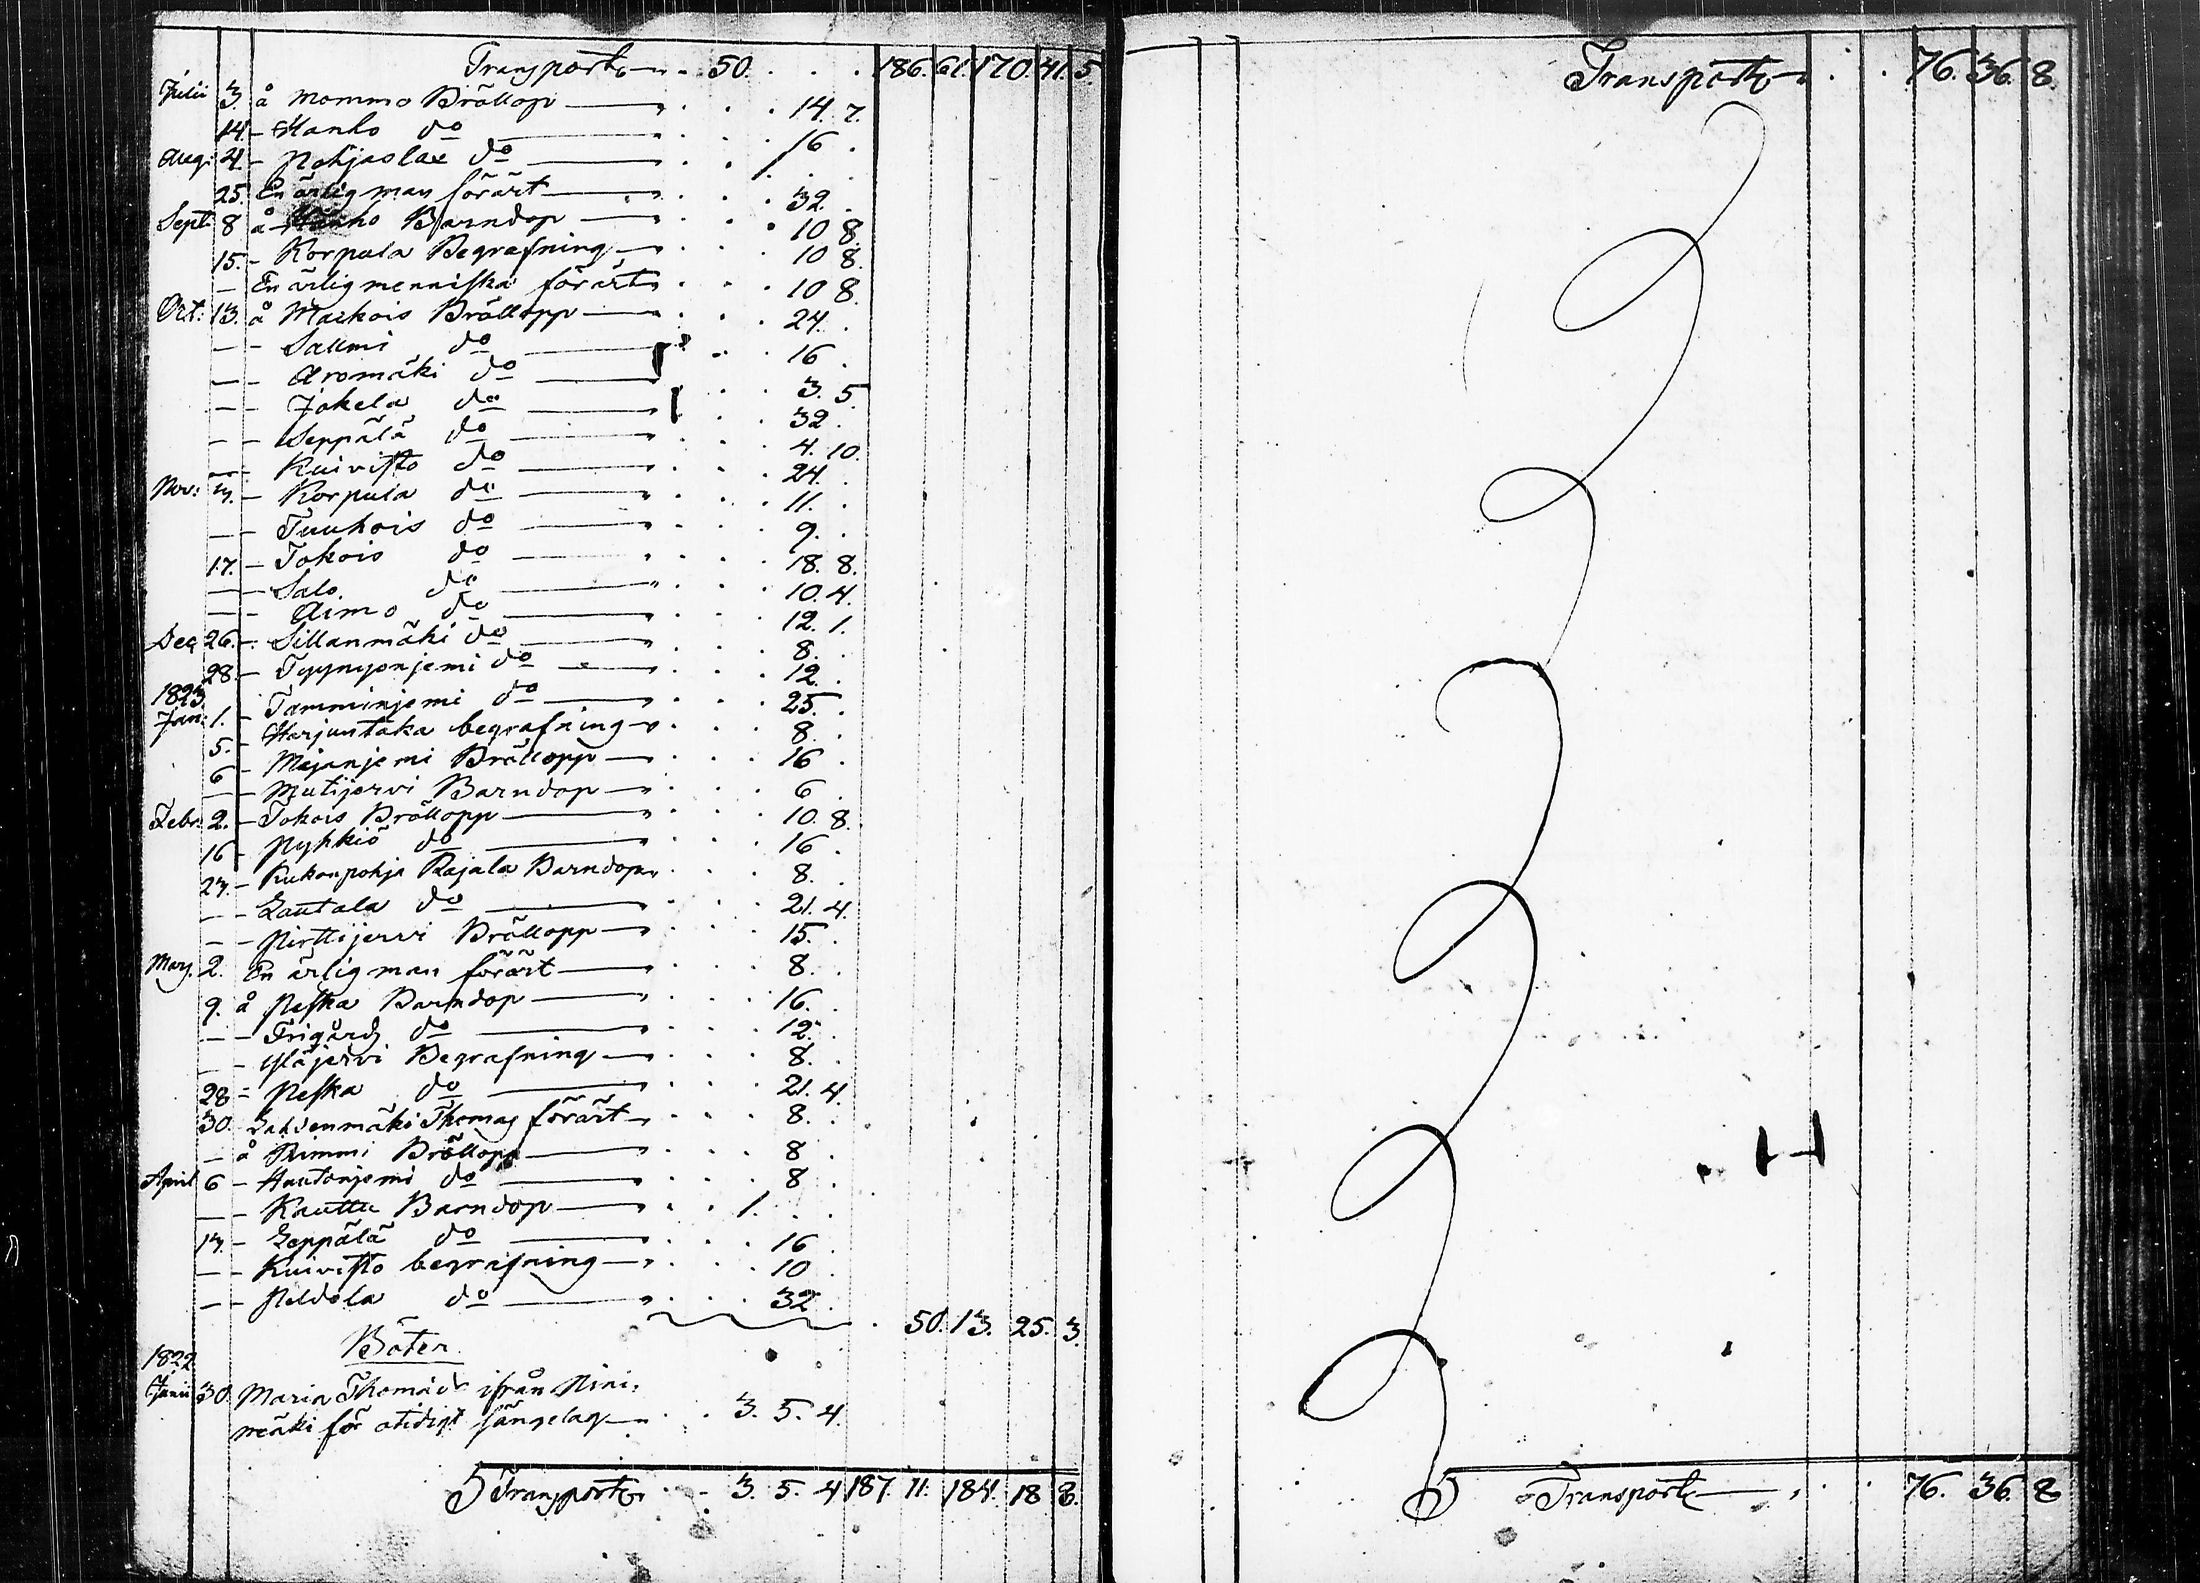 Transport 50. 186. 61. 170. 41. 5
Julii 3. å Mommo Bröllop 14. 7.
14. - Hanko do 16.
Aug: 4. - Pohjaslax do 1.
25. En ärlig man förärt 32.
Sept: 8 å Hanho Barndop 10 8.
15. - Korpula Begrafning 10 8.
— En ärlig menniska förärt 10 8.
Oct: 13. å Markois Bröllopp 24.
— - Sallmi do 16.
— - Aromäki do 3. 5.
— - Jokela do 32.
— - Seppälä do 4. 10.
— - Kuivisto do 24.
Nov: 3. - Korpula do 11.
— - Tuuhois do 9.
17. - Tokois do 18. 8.
— - Salo. do 10. 4.
— - Aimo do 12. 1.
Dec 26. - Sillanmäki do 8.
28. - Tyynyonjemi do 12.
1823.
Jan: 1. - Tamminjemi do 25.
5. - Harjuntaka begrafning 8.
6 - Majanjemi Bröllopp 16.
— - Mutijervi Barndop 6.
Febr: 2. - Tokois Bröllopp 10. 8.
16 - Pyhkiö do 16.
23. - Kukonpohja Rajala Barndop 8.
— - Lautala do 21. 4.
— - Pirttijervi Bröllopp 15.
Mars. 2. En ärlig man förärt 8.
9. å Peska Barndop 16.
— - Frigård do 12.
— - Yläjervi Begrafning 8.
28 - Peska do 21. 4.
30. Lahdenmäki Thomas förärt 8.
— å Rimmi Bröllopp 8.
April 6 - Hautonjemi do 8.
— - Kauttu Barndop 1.
13. - Leppälä do 16.
— - Kuivisto begrafning 10.
— - Peldola do 32.
50. 13. 25. 3.
Böter.
1822
Junii 30. Maria Thomädr ifrån Nini-
mäki för otidigt sängelag 3. 5. 4.
Transport 3. 5. 4 187. 11. 184. 18 8.
Transport 76. 36. 8.
Transport 76. 36. 8